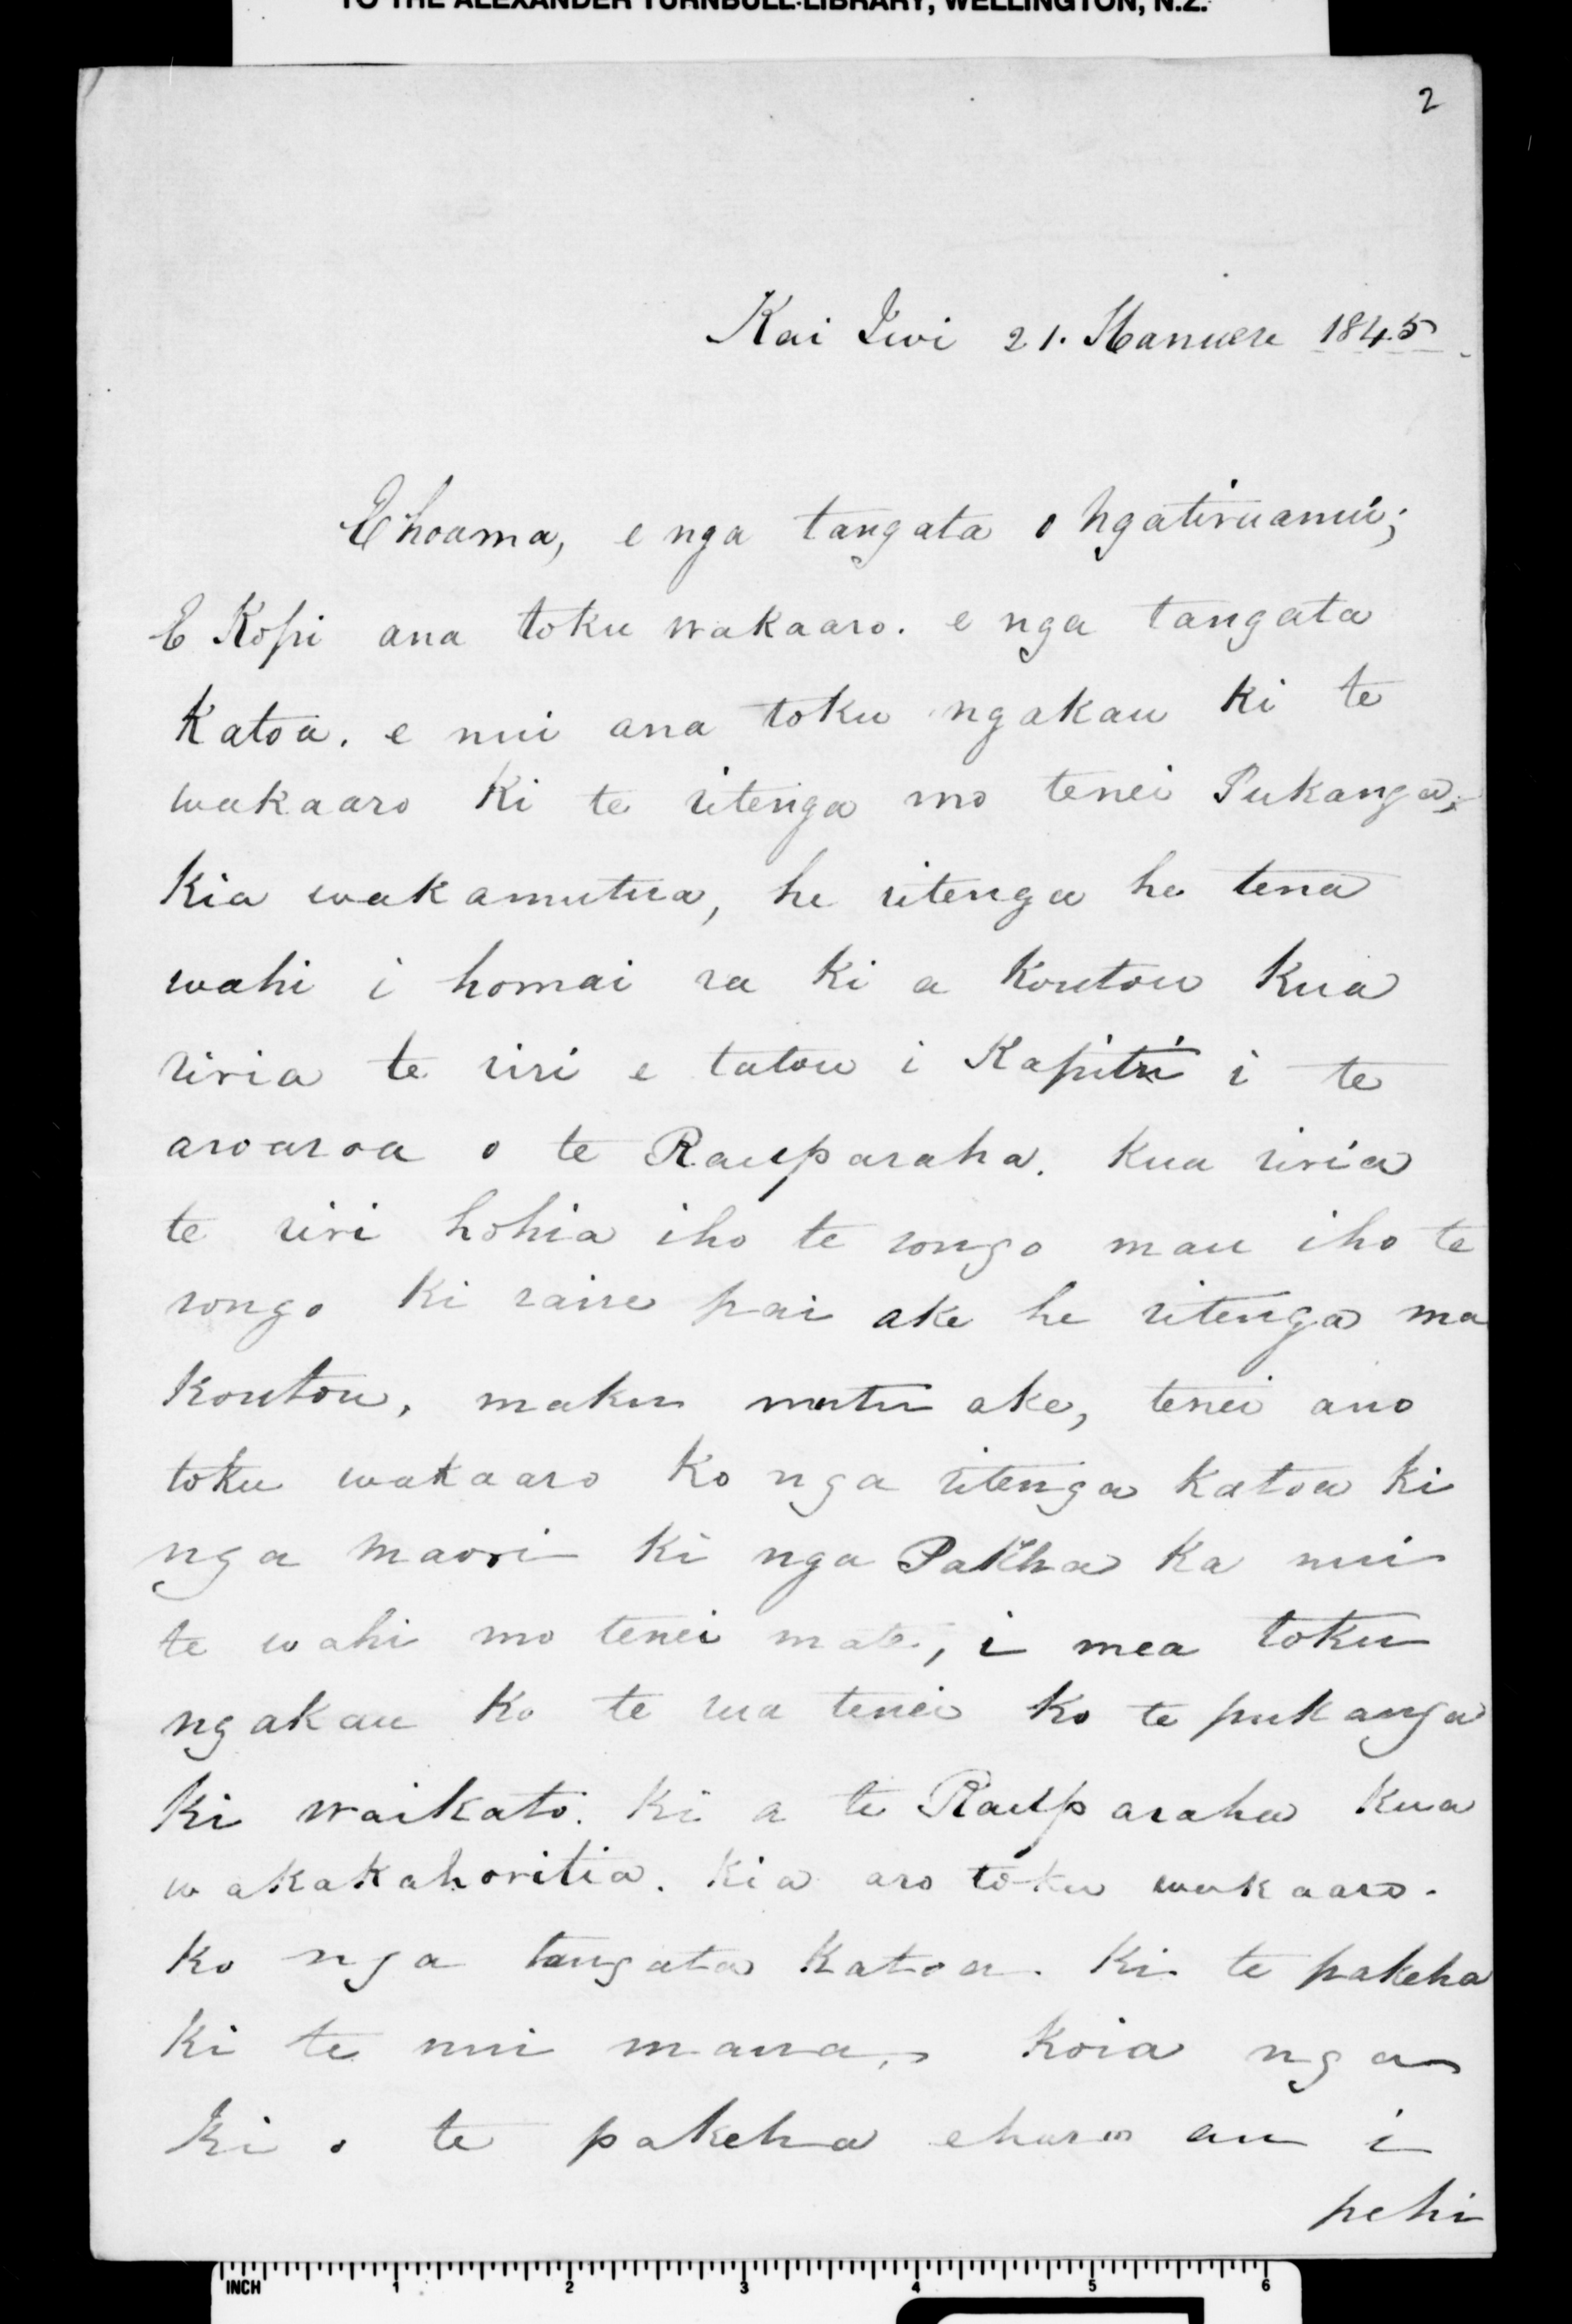 TO THE ALEXANDER TURNBULL LIBRARY, WELLINGTON, N.Z.
2
Kai Iwi 21. Hanuere 1845
E hoama, e nga tangata o Ngatiruanui;
E Kopi ana toku wakaaro. e nga tangata
Katoa. e nui ana toku ngakau ki te
wakaaro ki te ritenga mo tenei Pukanga,
Kia wakamutua, he ritenga he tena
wahi i homai ra ki a koutou kua
riria te riri e tatou i Kapiti i te
aroaroa o te Rauparaha. Kua riria
te riri hohia iho te rongo mau iho te
rongo ki raire pai ake he ritenga ma
koutou, maku mutu ake, tenei ano
toku wakaaro ko nga ritenga katoa ki
nga maori ki nga Pakeha ka nui
te wahi mo tenei mate, i mea toku
ngakau ko te rua tenei ko te pukanga
ki waikato. ki a te Rauparaha kua
wakakahoritia. kia aro toku wakaaro.
ko nga tangata katoa. ki te pakeha
ki te nui mana, koia nga
ki o te pakeha ehara au i
pehi
INCH 1 2 3 4 5 6